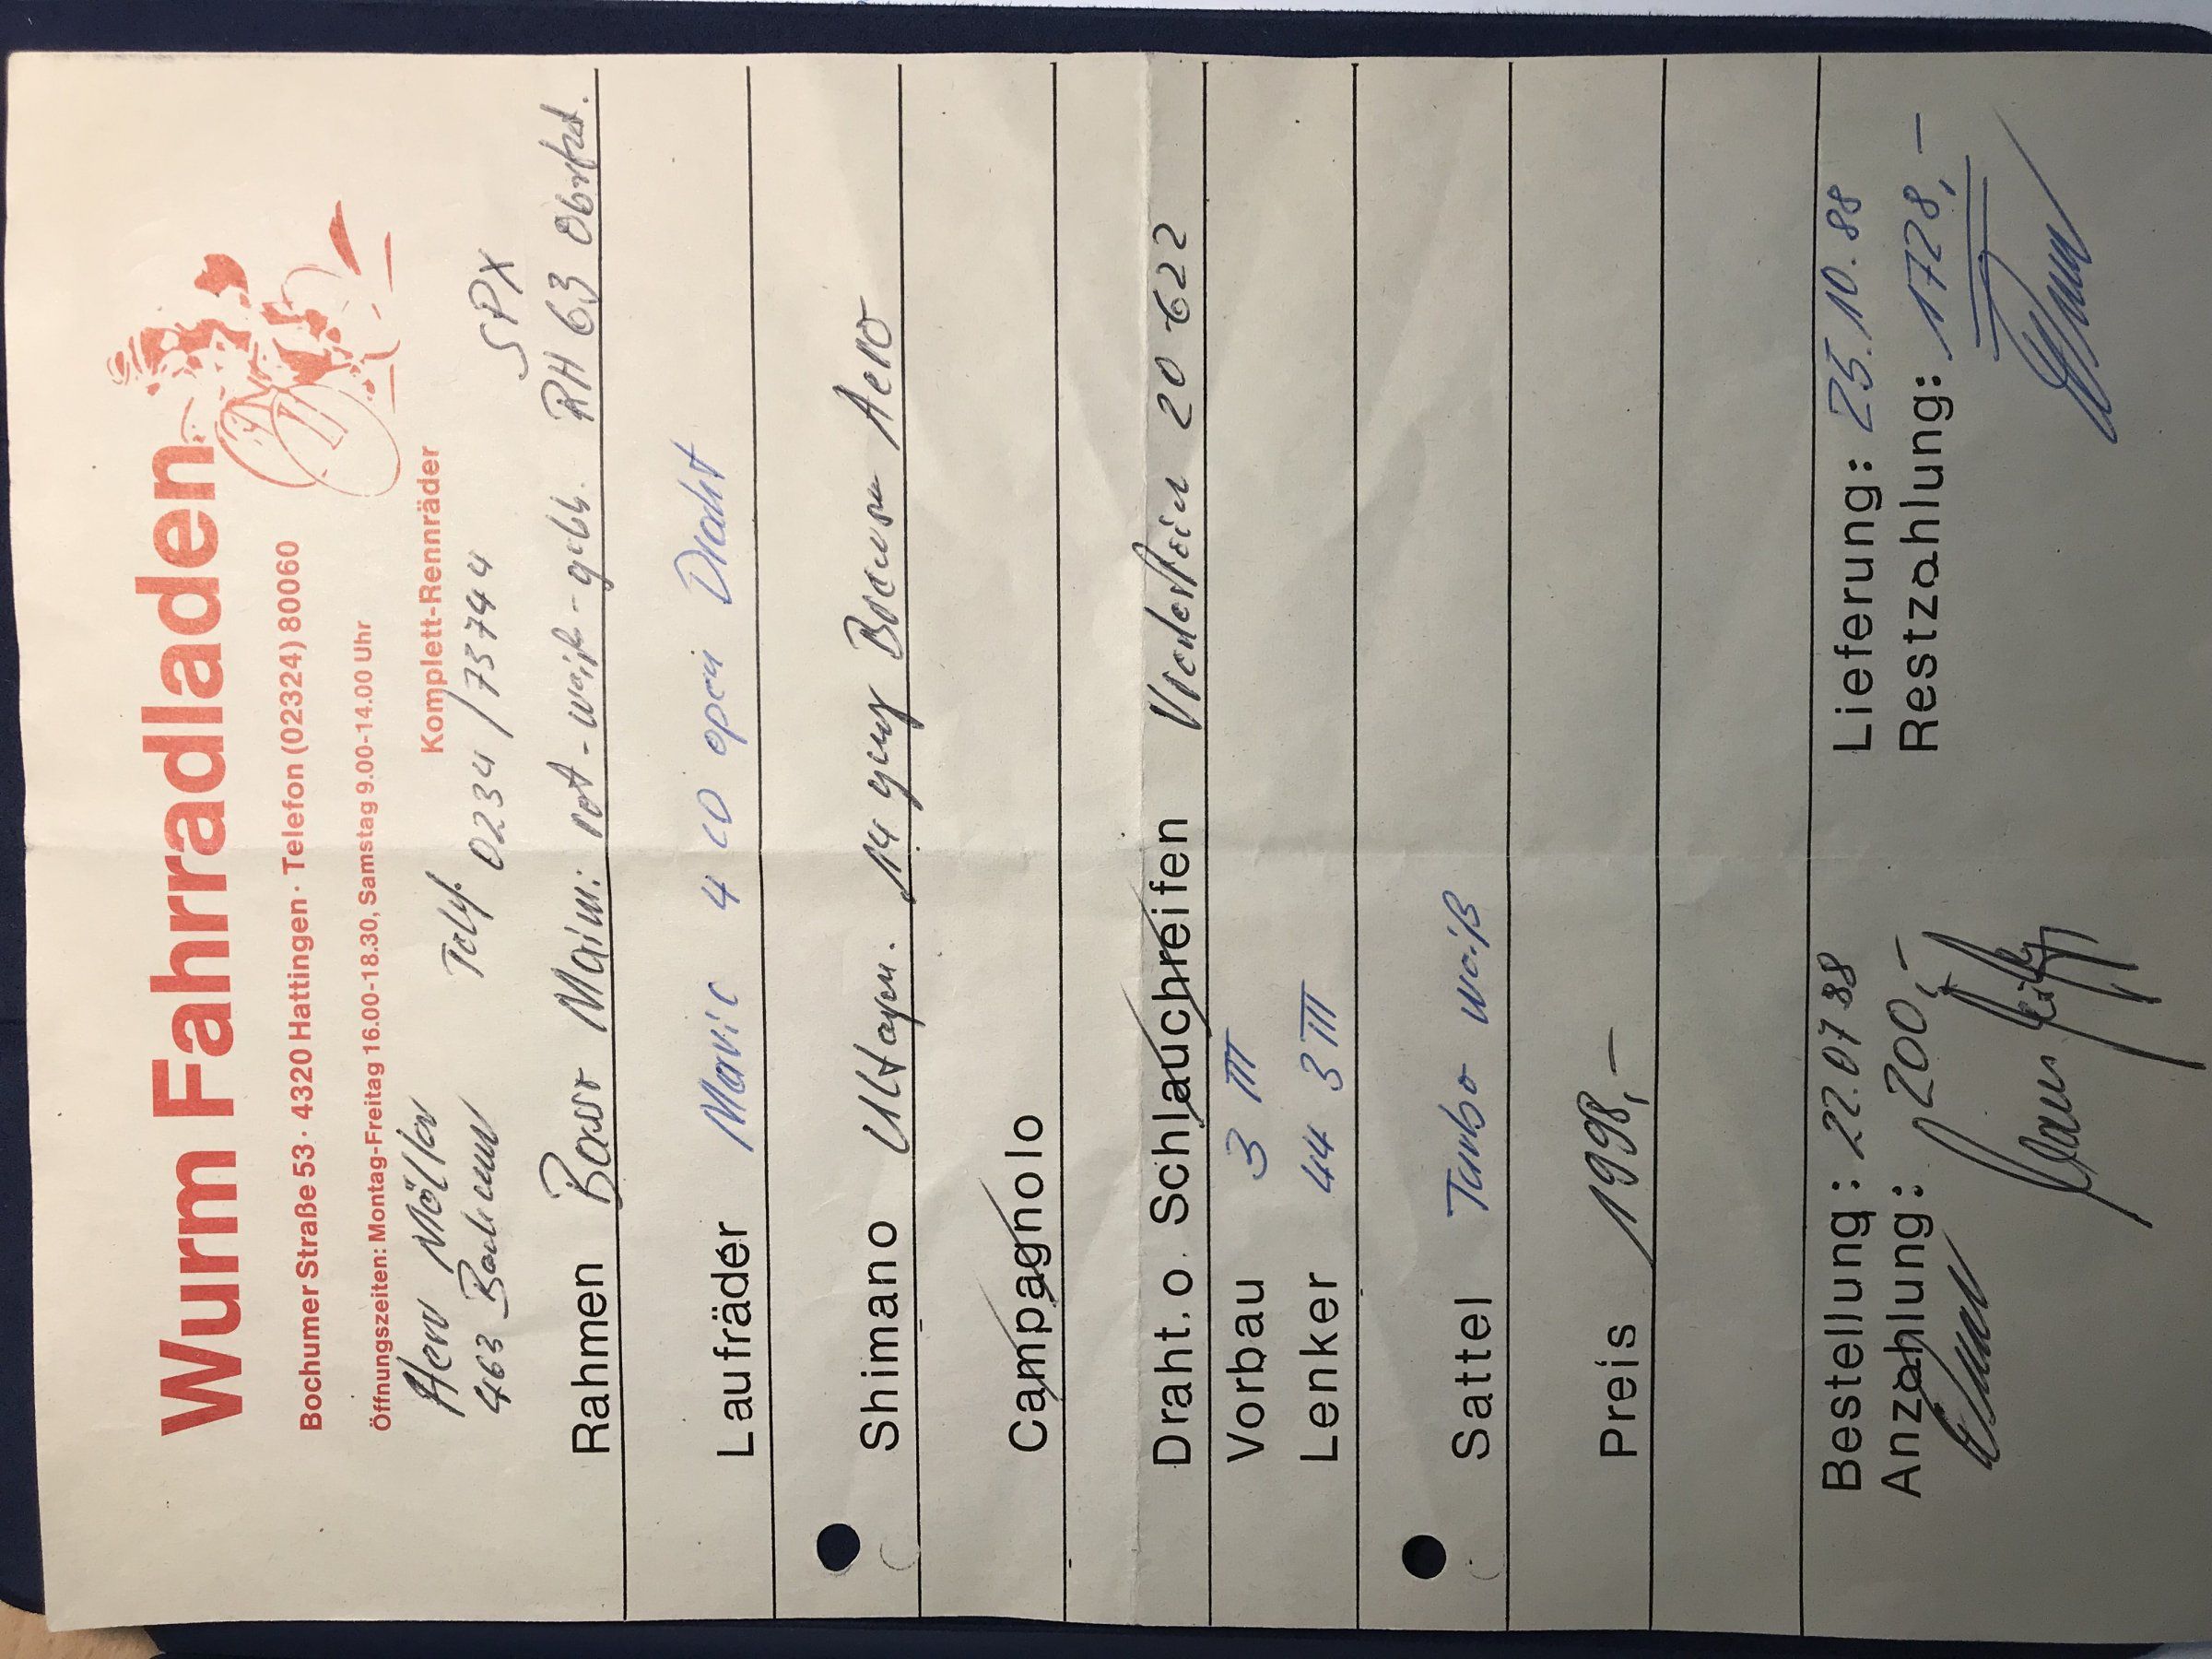 Wurm Fahrradladen
Bochumer Straße 53 · 4320 Hattingen · Telefon (02324) 80060
Öffnungszeiten: Montag-Freitag 16.00-18.30, Samstag 9.00-14.00 Uhr
Komplett-Rennräder
Herr Möller Telf. 0234/73744
463 Bochum SPX
Rahmen Maim: rot-weiß-gelb. RH 63
Laufräder Mavic 4 CD open Draht
Shimano Ultegra. 14 gang Bremsen Aero
Campagnolo
Draht.o. Schlauchreifen Vredestein 20 622
Vorbau 3 TTT
Lenker 44 3TTT
Sattel Turbo weiß
Preis 1998,-
Bestellung: 22.07 88 Lieferung: 25.10.88
Anzahlung: 200,- Restzahlung: 1728,-